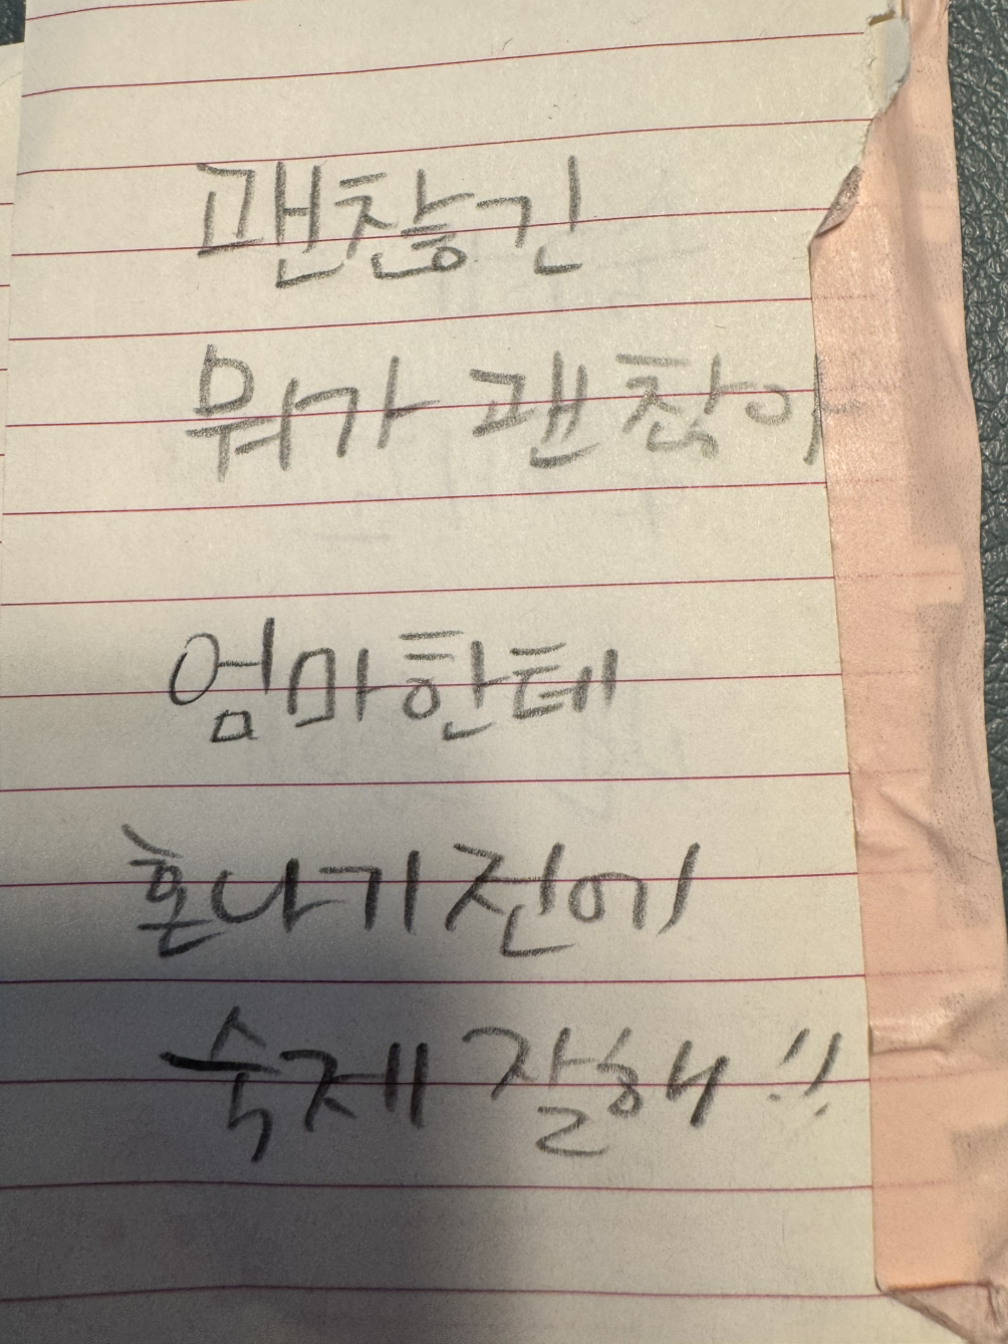 괜찮긴
뭐가 괜찮아
엄마한테
혼나기전에
숙제 잘해!!